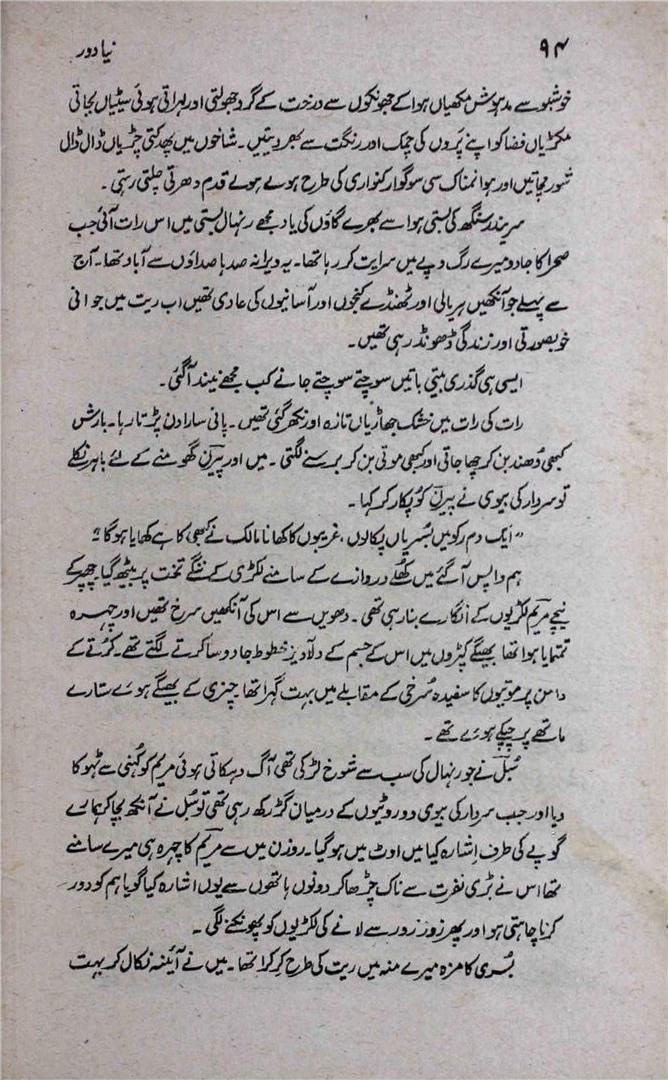 ۹۴ نیا دور
خوشبو سے مدہوش مکھیاں ہوا کے جھونکوں سے درخت کے گرد جھولتی اور لہراتی ہوئی سیٹیاں بجاتی
مکڑیاں فضا کو اپنے پَروں کی چمک اور رنگت سے بھر دیتیں۔ شاخوں میں پھدکتی چڑیاں ڈال ڈال
شور مچاتیں اور ہوا نمناک سی سوگوار کنواری کی طرح ہولے ہولے قدم دھرتی چلتی رہتی۔
سریندر سنگھ کی بستی ہوا سے بھرے گاؤں کی یاد مجھے رنہال بستی میں اس رات آئی جب
صحرا کا جادو میرے رگ و پے میں سرایت کر رہا تھا۔ یہ ویرانہ صدہا صداؤں سے آباد تھا۔ آج
سے پہلے جو آنکھیں ہریالی اور ٹھنڈے کنجوں اور آسانیوں کی عادی تھیں اب ریت میں جوانی
خوبصورتی اور زندگی ڈھونڈ رہی تھیں۔
ایسی ہی گذری بیتی باتیں سوچتے سوچتے جانے کب مجھے نیند آگئی۔
رات کی رات میں خشک جھاڑیاں تازہ اور نکھر گئی تھیں۔ پانی سارا دن پڑتا رہا۔ بارش
کبھی دُھند بن کر چھا جاتی اور کبھی موتی بن کر برسنے لگتی۔ میں اور پیرن گھومنے کے لئے باہر نکلے
تو سردار کی بیوی نے پیرن کو پکار کر کہا۔
"ایک دم رکو میں بُسریاں پکالوں، غریبوں کا کھانا مالک نے کبھی کاہے کھایا ہوگا"
ہم واپس آگئے میں کھُلے دروازے کے سامنے لکڑی کے ننگے تخت پر بیٹھ گیا۔ چھپر کے
نیچے مریم لکڑیوں کے انگارے بنا رہی تھی۔ دھویں سے اس کی آنکھیں سرخ تھیں اور چہرہ
تمتمایا ہوا تھا بھیگے کپڑوں میں اس کے جسم کے دلآویز خطوط جادو سا کرتے لگتے تھے۔ کُرتے کے
دامن پر موتیوں کا سفیدہ سُرخی کے مقابلے میں بہت گہرا تھا چنری کے بھیگے ہوئے ستارے
ماتھے پر چپکے ہوئے تھے۔
سُبل نے جو رنہال کی سب سے شوخ لڑکی تھی آگ دہکاتی ہوئی مریم کو کُہنی سے ٹہوکا
دیا اور جب سردار کی بیوی دو روٹیوں کے درمیان گڑ رکھ رہی تھی تو سُبل نے آنکھ بچا کر ہمارے
گوپے کی طرف اشارہ کیا میں اوٹ میں ہوگیا۔ روزن میں سے مریم کا چہرہ ہی میرے سامنے
تھا اس نے بڑی نفرت سے ناک چڑھا کر دونوں ہاتھوں سے یوں اشارہ کیا گویا ہم کو دور
کرنا چاہتی ہو اور پھر زور زور سے لانے کی لکڑیوں کو پھونکنے لگی۔
بُسری کا مزہ میرے منہ میں ریت کی طرح کرکرا تھا۔ میں نے آئینہ نکال کر بہت